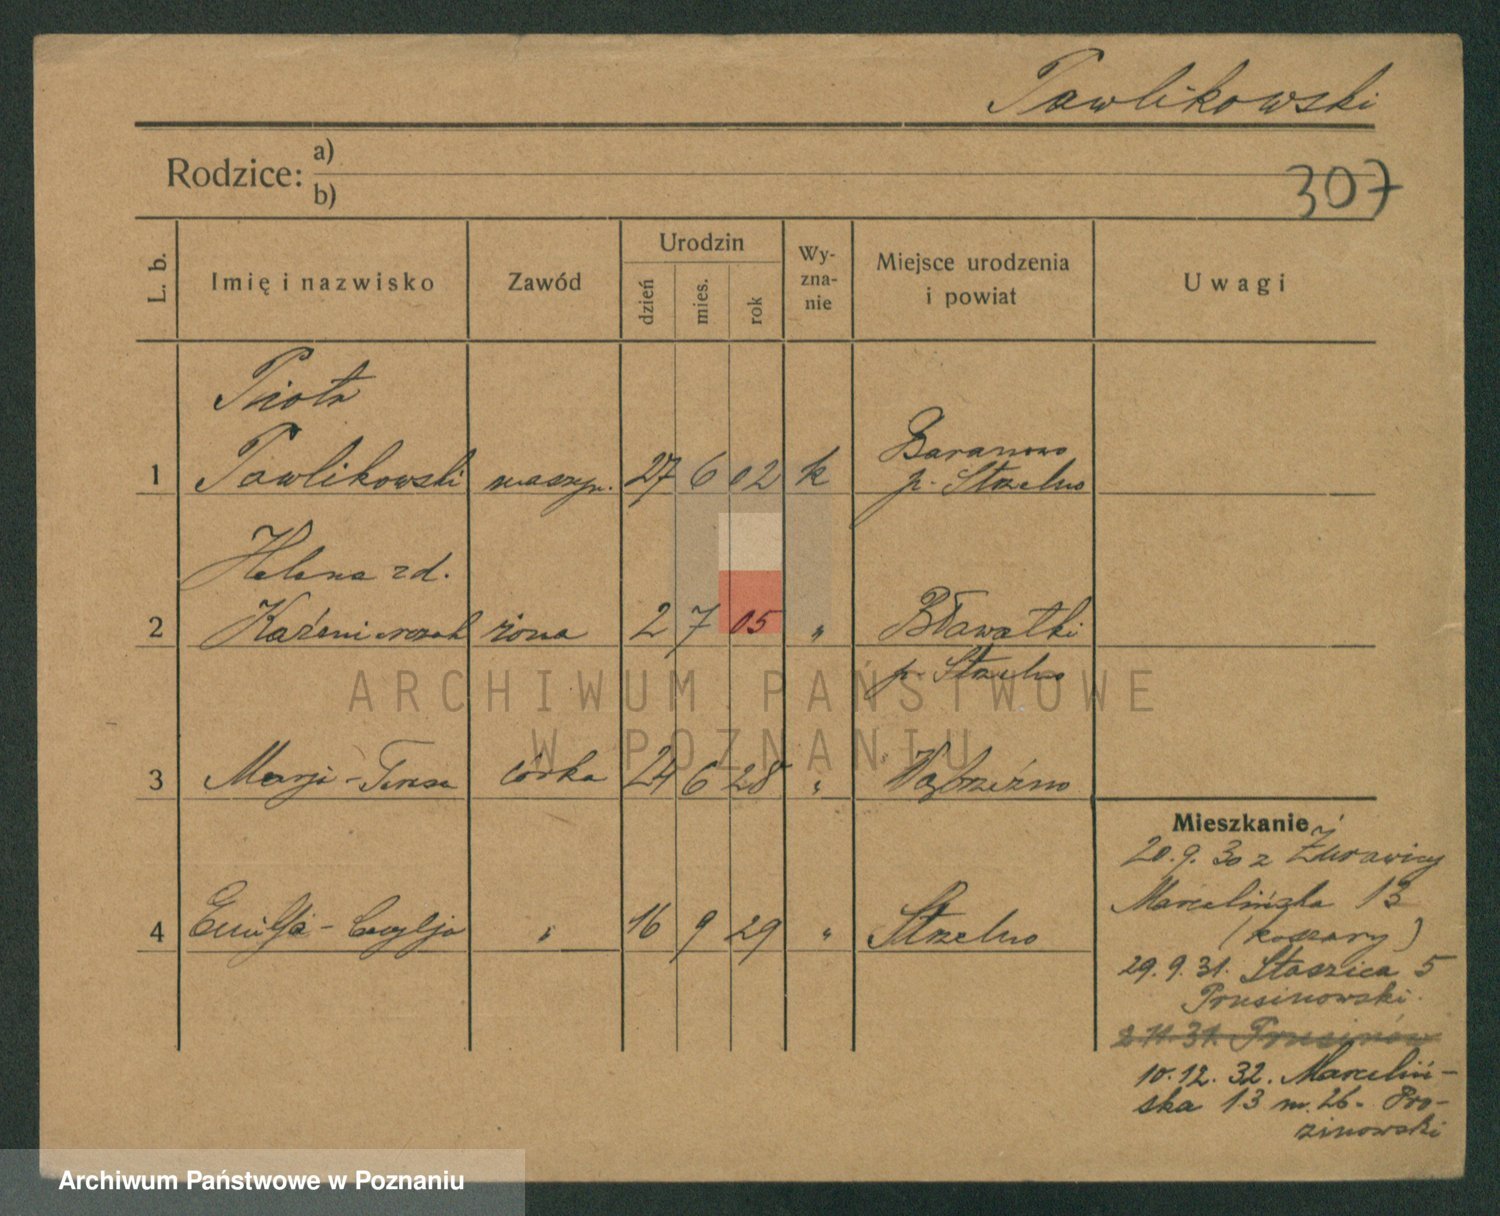 Pawlikowski
Rodzice: a)
b)
307
L. b.
Imię i nazwisko
Zawód
Urodzin
dzień
mies.
rok
Wy-
zna-
nie
Miejsce urodzenia
i powiat
Uwagi
Piotr
1 Pawlikowski maszyn. 27 6 02 k Baranowo
p. Strzelno
Helena zd.
2 Kaźmierczak żona 2 7 05 " Bławatki
p. Strzelno
3 Marja-Teresa córka 24 6 28 " Wąbrzeźno
4 Emilja-Cecylja " 16 9 29 " Strzelno
Mieszkanie
20.9.30 z Żurawicy
Marcelińska 13
(koszary)
29.9.31. Staszica 5
Prusinowski.
2.11.31. Prusinow
10.12.32. Marceliń-
ska 13 m. 26. Pro-
zinowski
ARCHIWUM PAŃSTWOWE
W POZNANIU
Archiwum Państwowe w Poznaniu